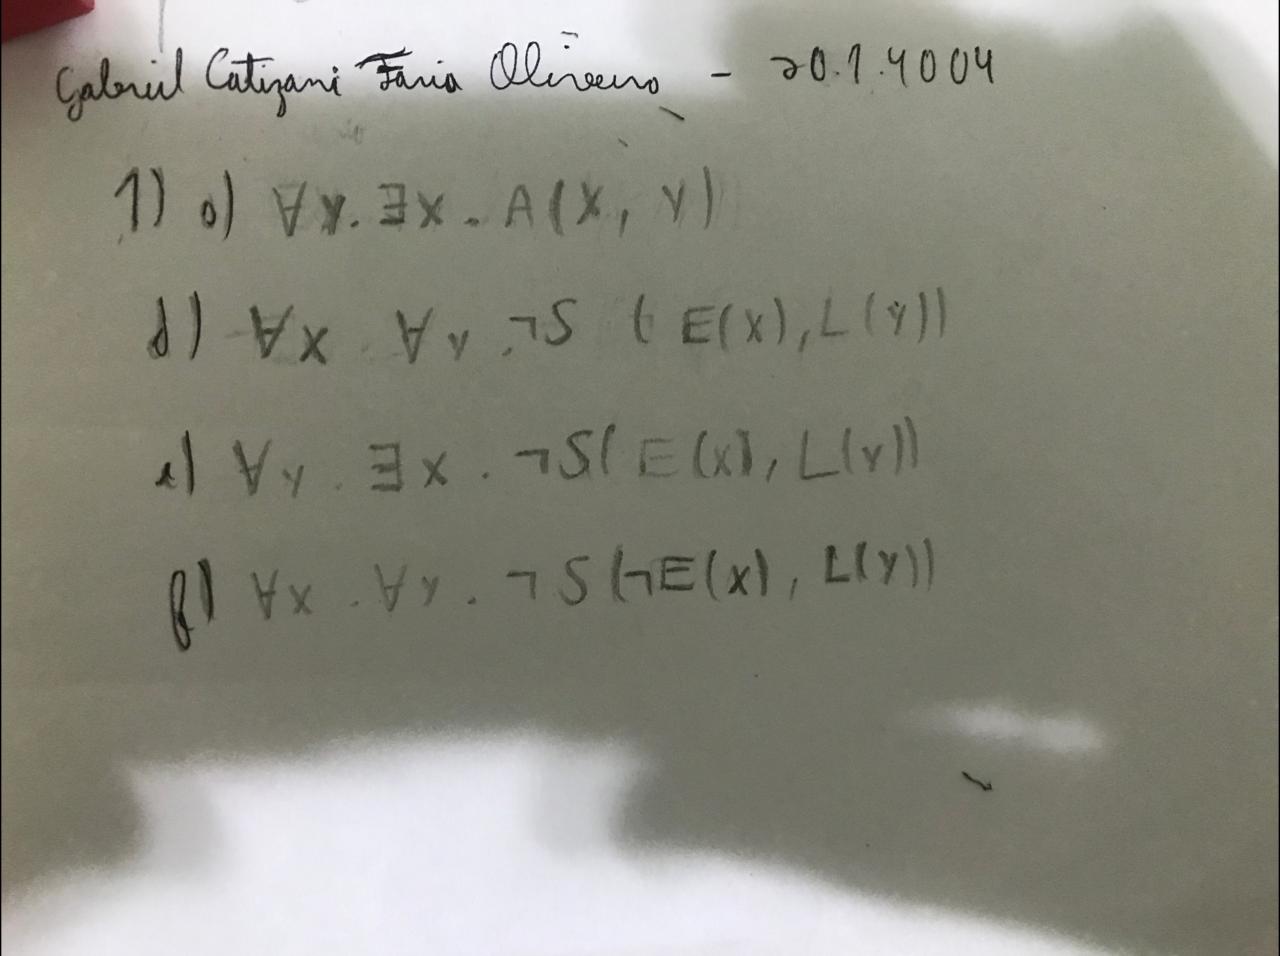 Gabriel Catizani Faria Oliveira - 20.1.4004
1) a) ∀y. ∃x. A(x, y)
d) ∀x ∀y .¬S ( E(x), L(y))
e) ∀y . ∃x . ¬S( E(x), L(y))
f) ∀x . ∀y . ¬S(¬E(x), L(y))